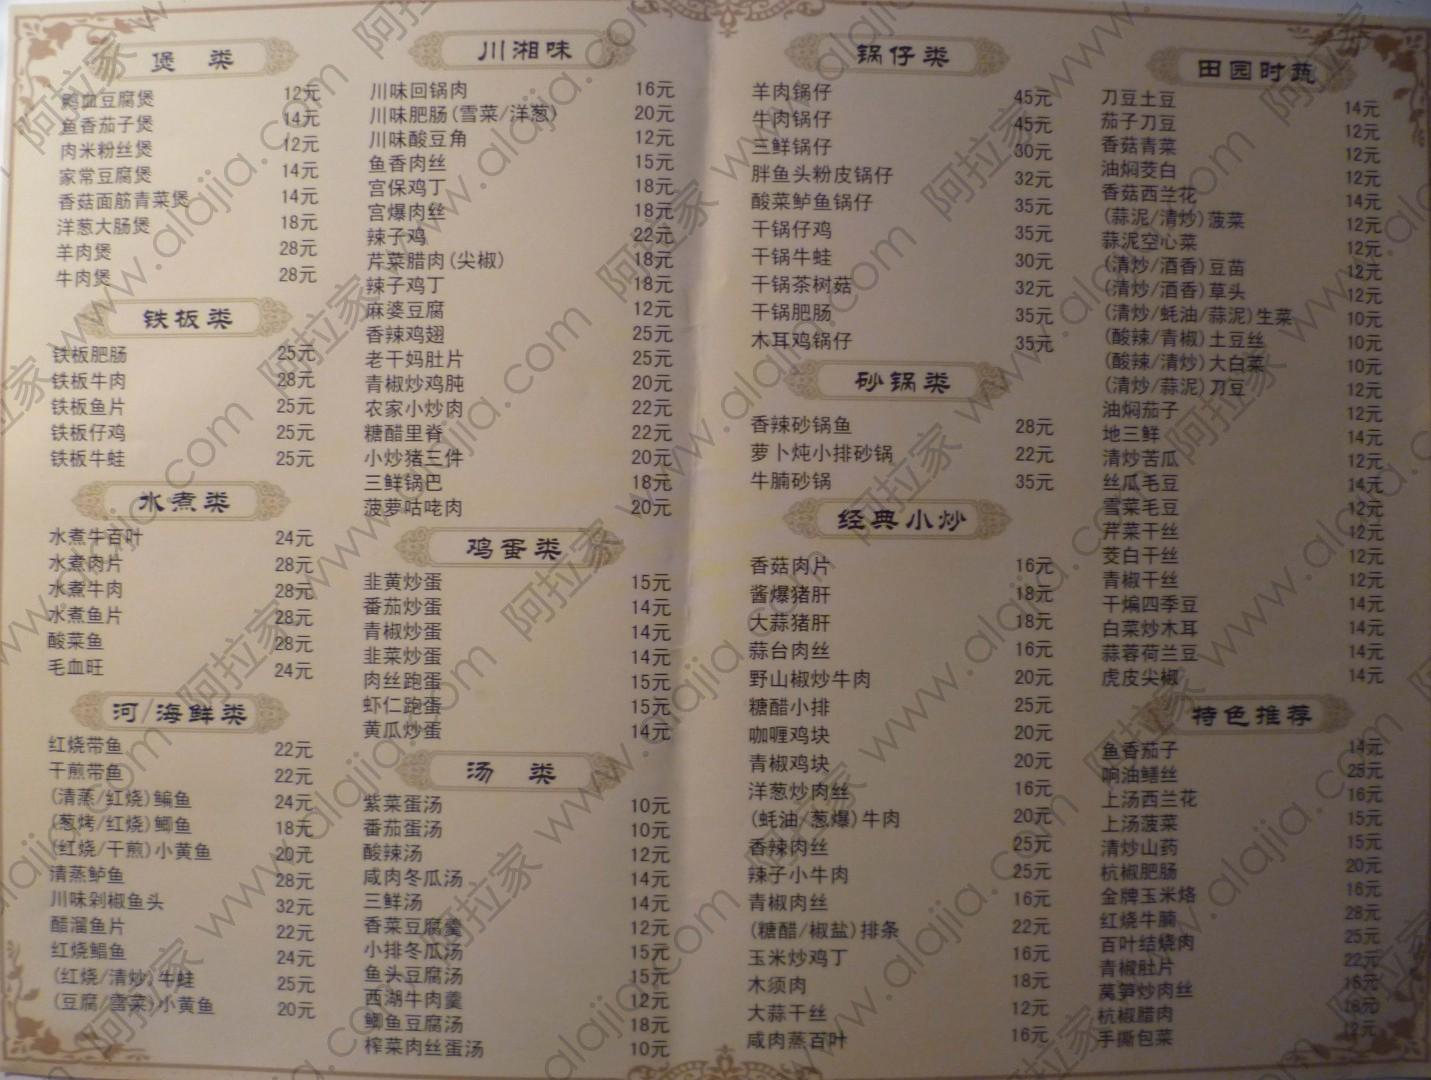 煲 类
鸭血豆腐煲 12元
鱼香茄子煲 14元
肉米粉丝煲 12元
家常豆腐煲 14元
香菇面筋青菜煲 14元
洋葱大肠煲 18元
羊肉煲 28元
牛肉煲 28元
铁板类
铁板肥肠 25元
铁板牛肉 28元
铁板鱼片 25元
铁板仔鸡 25元
铁板牛蛙 25元
水煮类
水煮牛百叶 24元
水煮肉片 28元
水煮牛肉 28元
水煮鱼片 28元
酸菜鱼 28元
毛血旺 24元
河/海鲜类
红烧带鱼 22元
干煎带鱼 22元
(清蒸/红烧)鳊鱼 24元
(葱烤/红烧)鲫鱼 18元
(红烧/干煎)小黄鱼 20元
清蒸鲈鱼 28元
川味剁椒鱼头 32元
醋溜鱼片 22元
红烧鲳鱼 24元
(红烧/清炒)牛蛙 25元
(豆腐/雪菜)小黄鱼 20元
川湘味
川味回锅肉 16元
川味肥肠(雪菜/洋葱) 20元
川味酸豆角 12元
鱼香肉丝 15元
宫保鸡丁 18元
宫爆肉丝 18元
辣子鸡 22元
芹菜腊肉(尖椒) 18元
辣子鸡丁 18元
麻婆豆腐 12元
香辣鸡翅 25元
老干妈肚片 25元
青椒炒鸡肫 20元
农家小炒肉 22元
糖醋里脊 22元
小炒猪三件 20元
三鲜锅巴 18元
菠萝咕咾肉 20元
鸡蛋类
韭黄炒蛋 15元
番茄炒蛋 14元
青椒炒蛋 14元
韭菜炒蛋 14元
肉丝跑蛋 15元
虾仁跑蛋 15元
黄瓜炒蛋 14元
汤 类
紫菜蛋汤 10元
番茄蛋汤 10元
酸辣汤 12元
咸肉冬瓜汤 14元
三鲜汤 14元
香菜豆腐羹 12元
小排冬瓜汤 15元
鱼头豆腐汤 15元
西湖牛肉羹 12元
鲫鱼豆腐汤 18元
榨菜肉丝蛋汤 10元
锅仔类
羊肉锅仔 45元
牛肉锅仔 45元
三鲜锅仔 30元
胖鱼头粉皮锅仔 32元
酸菜鲈鱼锅仔 35元
干锅仔鸡 35元
干锅牛蛙 30元
干锅茶树菇 32元
干锅肥肠 35元
木耳鸡锅仔 35元
砂锅类
香辣砂锅鱼 28元
萝卜炖小排砂锅 22元
牛腩砂锅 35元
经典小炒
香菇肉片 16元
酱爆猪肝 18元
大蒜猪肝 18元
蒜台肉丝 16元
野山椒炒牛肉 20元
糖醋小排 25元
咖喱鸡块 20元
青椒鸡块 20元
洋葱炒肉丝 16元
(蚝油/葱爆)牛肉 20元
香辣肉丝 25元
辣子小牛肉 25元
青椒肉丝 16元
(糖醋/椒盐)排条 22元
玉米炒鸡丁 16元
木须肉 18元
大蒜干丝 12元
咸肉蒸百叶 16元
田园时蔬
刀豆土豆 14元
茄子刀豆 12元
香菇青菜 12元
油焖茭白 12元
香菇西兰花 14元
(蒜泥/清炒)菠菜 12元
蒜泥空心菜 12元
(清炒/酒香)豆苗 12元
(清炒/酒香)草头 12元
(清炒/蚝油/蒜泥)生菜 10元
(酸辣/青椒)土豆丝 10元
(酸辣/清炒)大白菜 10元
(清炒/蒜泥)刀豆 12元
油焖茄子 12元
地三鲜 14元
清炒苦瓜 12元
丝瓜毛豆 14元
雪菜毛豆 12元
芹菜干丝 12元
茭白干丝 12元
青椒干丝 12元
干煸四季豆 14元
白菜炒木耳 14元
蒜蓉荷兰豆 14元
虎皮尖椒 14元
特色推荐
鱼香茄子 14元
响油鳝丝 25元
上汤西兰花 16元
上汤菠菜 15元
清炒山药 15元
杭椒肥肠 20元
金牌玉米烙 16元
红烧牛腩 28元
百叶结烧肉 25元
青椒肚片 22元
莴笋炒肉丝 16元
杭椒腊肉 18元
手撕包菜 12元
阿拉家 www.alajia.com